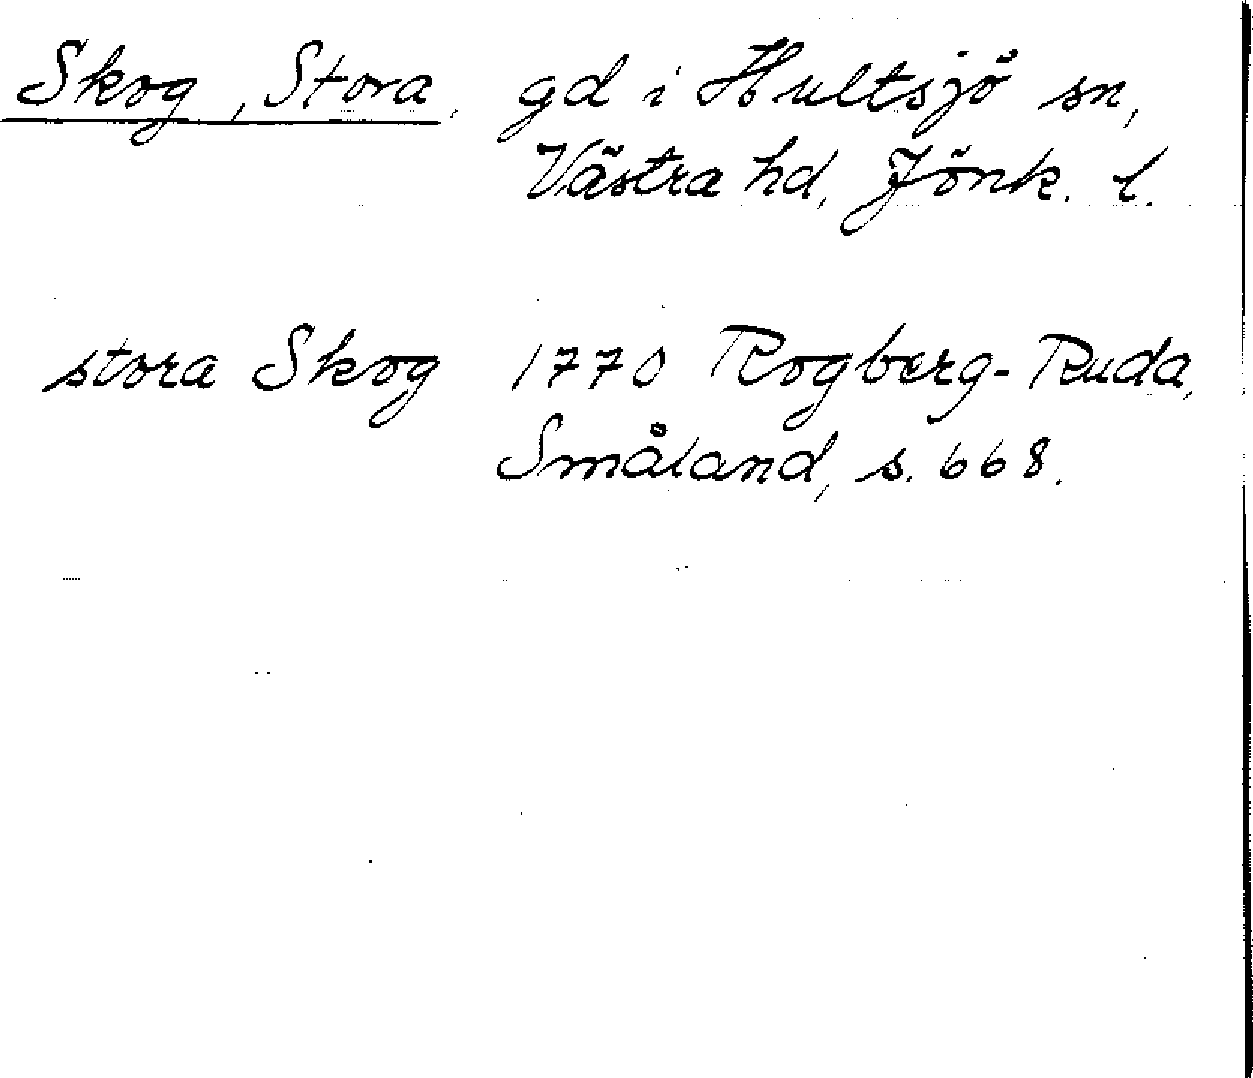 Skog, Stora, gd i Hultsjö sn,
Västra hd, Jönk. l.
stora Skog 1770 Rogberg-Ruda,
Småland, s. 668.